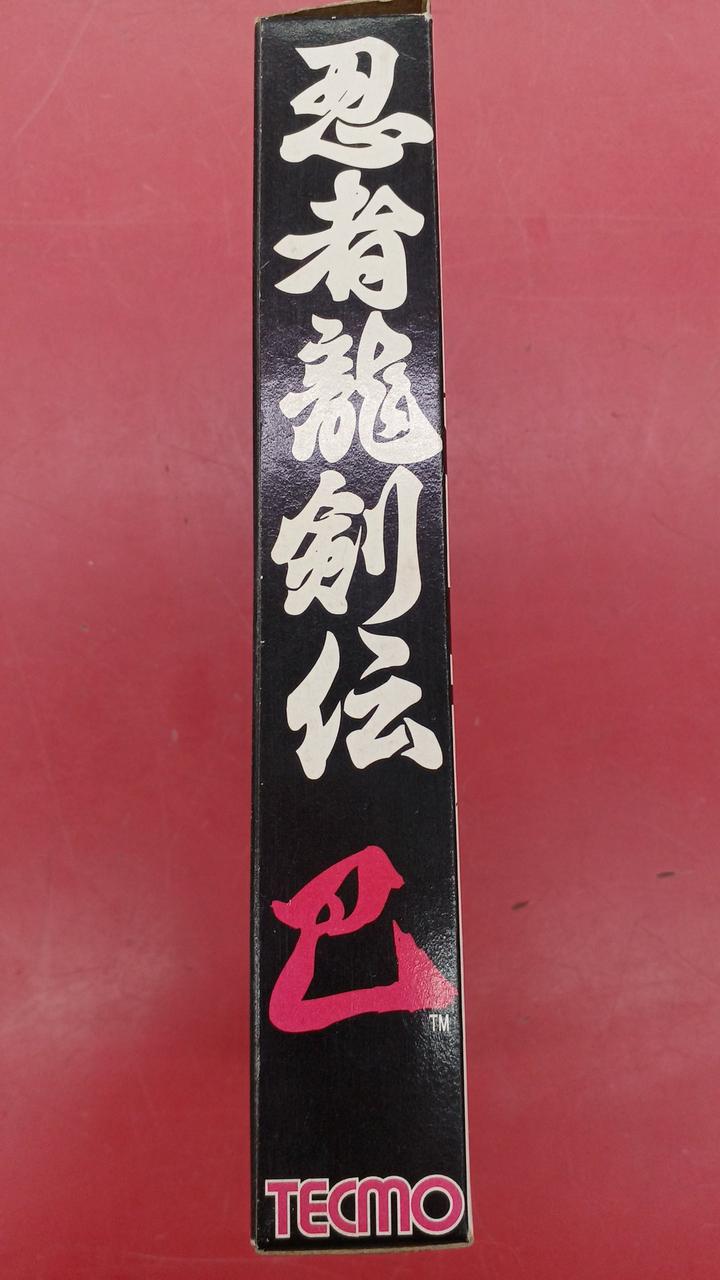 忍者龍剣伝
巴
TM
TECMO